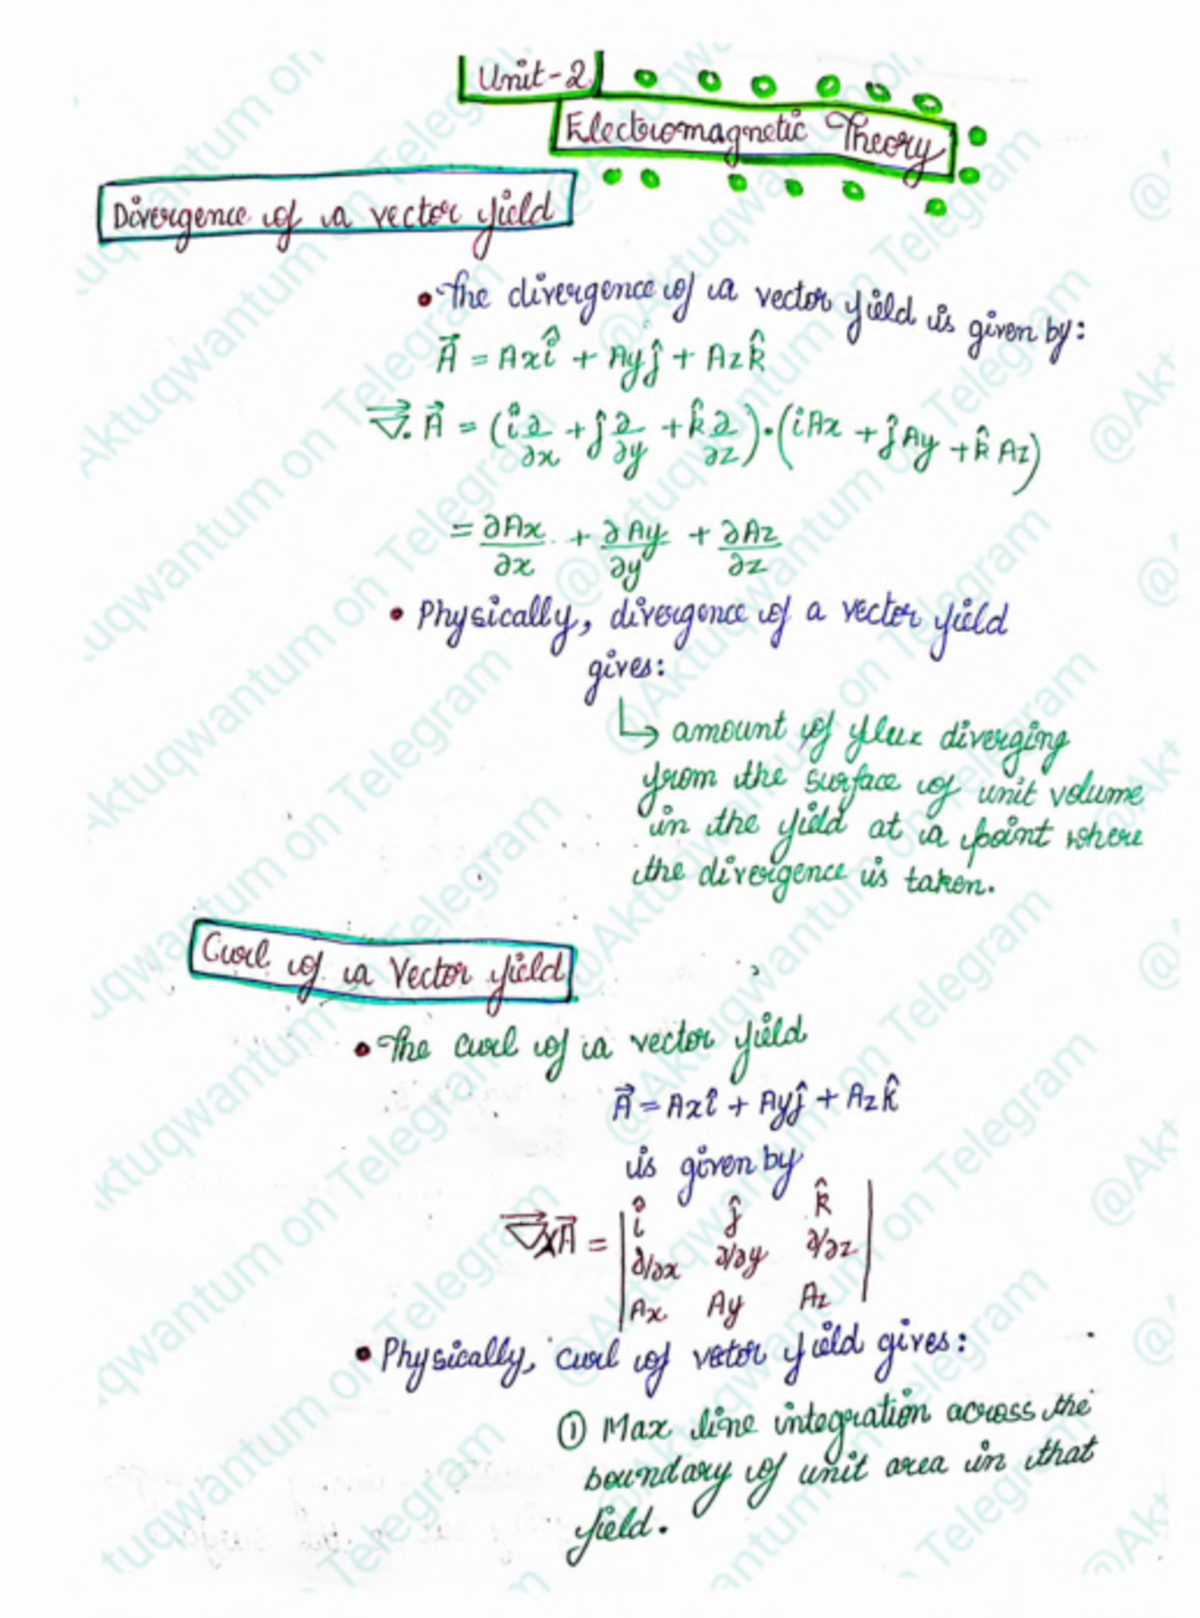 Unit-2
Electromagnetic Theory
Divergence of a vector field
• The divergence of a vector field is given by:
A⃗ = Axî + Ayĵ + Azk̂
∇⃗. A⃗ = (î ∂/∂x + ĵ ∂/∂y + k̂ ∂/∂z)•(îAx + ĵAy + k̂Az)
= ∂Ax/∂x + ∂Ay/∂y + ∂Az/∂z
• Physically, divergence of a vector field
gives:
↳ amount of flux diverging
from the surface of unit volume
in the field at a point where
the divergence is taken.
Curl of a Vector field
• The curl of a vector field
A⃗ = Axî + Ayĵ + Azk̂
is given by
∇⃗xA⃗ = | î ĵ k̂ |
| ∂/∂x ∂/∂y ∂/∂z |
| Ax Ay Az |
• Physically, curl of vetor field gives:
① Max line integration across the
boundary of unit area in that
field.
@Aktuqwantum on Telegram